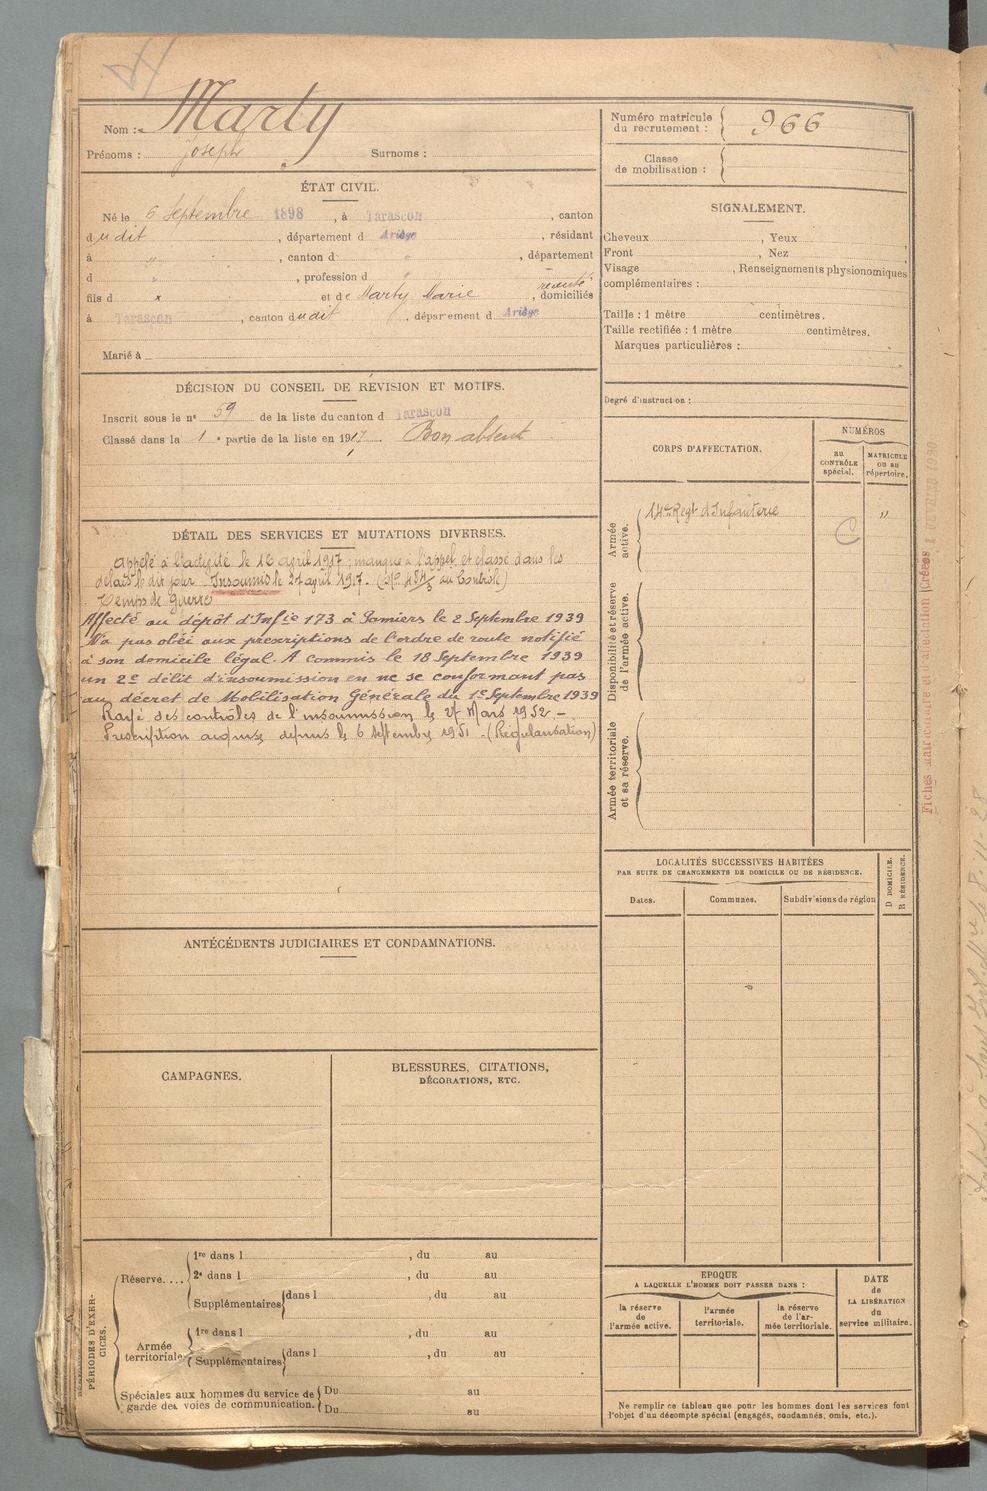 Nom : Marty
Prénoms : Joseph Surnoms :
ÉTAT CIVIL.
Né le 6 Septembre 1898, à Tarascon, canton
dudit, département d Ariège, résidant
à " , canton d " , département
d " , profession d "
fils d x et de Marty Marie , domiciliés
à Tarascon, canton dudit, département d Ariège
Marié à
DÉCISION DU CONSEIL DE RÉVISION ET MOTIFS.
Inscrit sous le n° 59 de la liste du canton d Tarascon
Classé dans la 1e partie de la liste en 1917. Bon absent
DÉTAIL DES SERVICES ET MUTATIONS DIVERSES.
Appelé à l'activité le 16 avril 1917, manque à l'appel et classé dans les
délais le dit jour Insoumis le 27 avril 1917. au Contrôle)
Temps de Guerre
Affecté au dépôt d'Infie 173 à Pamiers le 2 Septembre 1939
N'a pas obéi aux prescriptions de l'ordre de route notifié
à son domicile légal. A commis le 18 Septembre 1939
un 2e délit d'insoumission en ne se conformant pas
au décret de Mobilisation Générale du 1e Septembre 1939
Rayé des contrôles de l'insoumission le 27 Mars 1952 -
Prescription acquise depuis le 6 Septembre 1951 - (Régularisation)
ANTÉCÉDENTS JUDICIAIRES ET CONDAMNATIONS.
CAMPAGNES.
BLESSURES, CITATIONS,
DÉCORATIONS, ETC.
PÉRIODES D'EXERCICES.
Réserve....
1re dans l , du au
2e dans l , du au
Supplémentaires dans l , du au
Armée
territoriale
1re dans l , du au
Supplémentaires dans l , du au
Spéciales aux hommes du service de
garde des voies de communication.
Du au
Du au
Numéro matricule
du recrutement : 966
Classe
de mobilisation :
SIGNALEMENT.
Cheveux , Yeux
Front , Nez
Visage , Renseignements physionomiques
complémentaires :
Taille : 1 mètre centimètres.
Taille rectifiée : 1 mètre centimètres.
Marques particulières :
Degré d'instruction :
CORPS D'AFFECTATION.
NUMÉROS
au
CONTRÔLE
spécial.
MATRICULE
ou au
répertoire.
Armée
active.
14e Regt d'Infanterie C "
Disponibilité et réserve
de l'armée active.
Armée territoriale
et sa réserve.
LOCALITÉS SUCCESSIVES HABITÉES
PAR SUITE DE CHANGEMENTS DE DOMICILE OU DE RÉSIDENCE.
D DOMICILE.
R RÉSIDENCE.
Dates. Communes. Subdivisions de région
EPOQUE
A LAQUELLE L'HOMME DOIT PASSER DANS :
la réserve
de
l'armée active.
l'armée
territoriale.
la réserve
de l'armée territoriale.
DATE
de
LA LIBÉRATION
du
service militaire.
Ne remplir ce tableau que pour les hommes dont les services font
l'objet d'un décompte spécial (engagés, condamnés, omis, etc.).